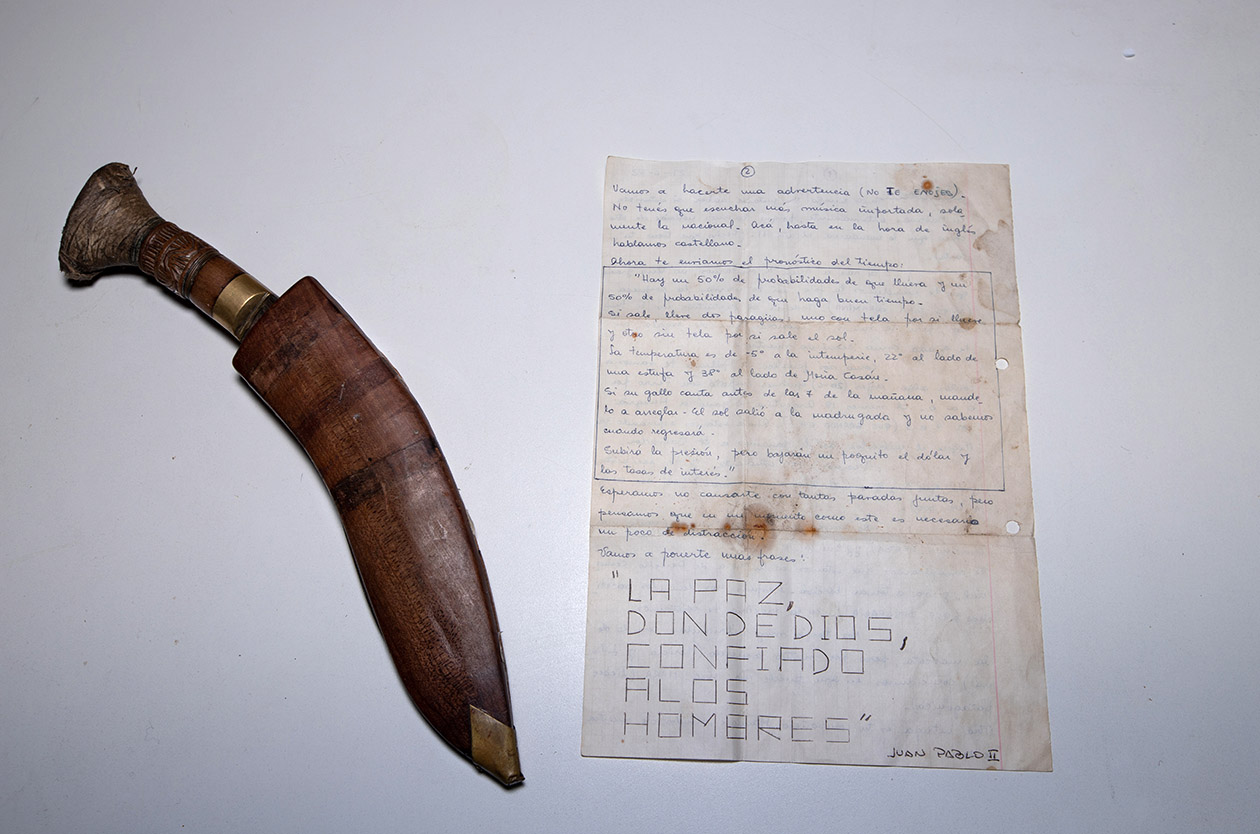 2
Vamos a hacerte una advertencia (NO TE ENOJES).
No tenés que escuchar más música importada, sola
mente la nacional. Acá, hasta en la hora de inglés
hablamos castellano.
Ahora te enviamos el pronóstico del tiempo:
"Hay un 50% de probabilidades de que llueva y un
50% de probabilidades de que haga buen tiempo.
Si sale, lleve dos paraguas uno con tela por si llueve
y otro sin tela por si sale el sol.
La temperatura es de -5° a la intemperie, 22° al lado de
una estufa y 38° al lado de Moria Casán.
Si su gallo canta antes de las 7 de la mañana, mande-
lo a arreglar. El sol salió a la madrugada y no sabemos
cuando regresará.
Subirá la presión, pero bajarán un poquito el dólar y
las tasas de interés."
Esperamos no cansarte con tantas pavadas juntas, pero
pensamos que en un momento como este es necesario
un poco de distracción.
Vamos a ponerte unas frases:
"LA PAZ,
DON DE DIOS,
CONFIADO
A LOS
HOMBRES"
JUAN PABLO II